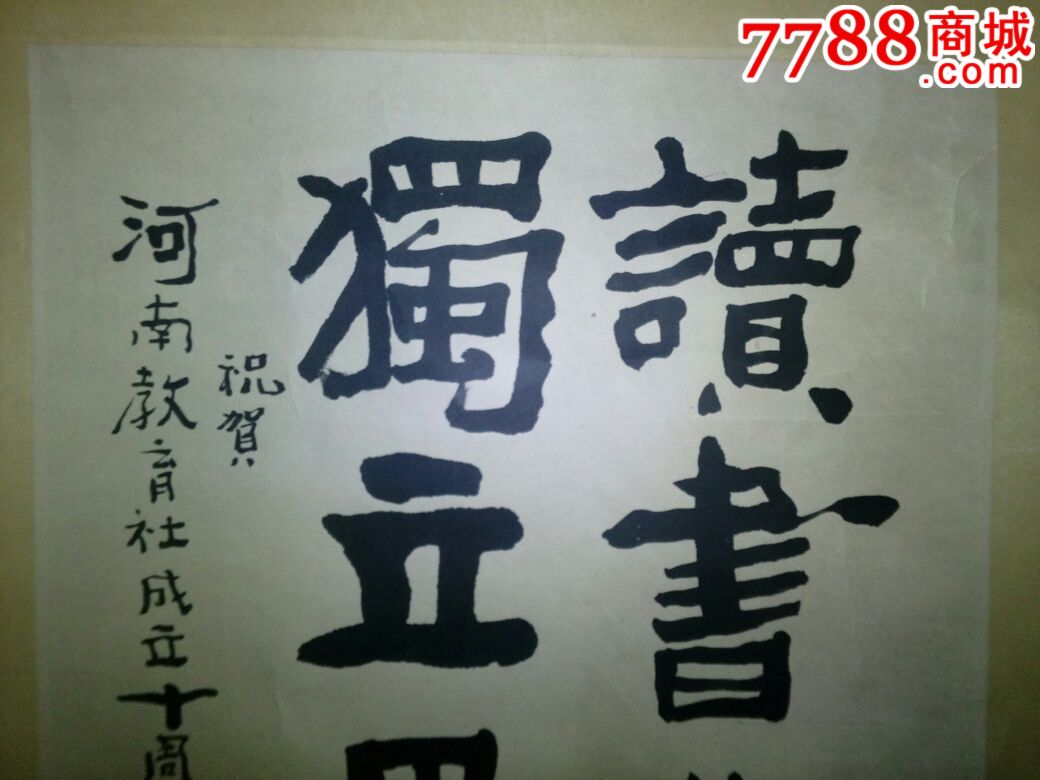 7788商城
.com
讀書
獨立
祝賀
河南教育社成立十周